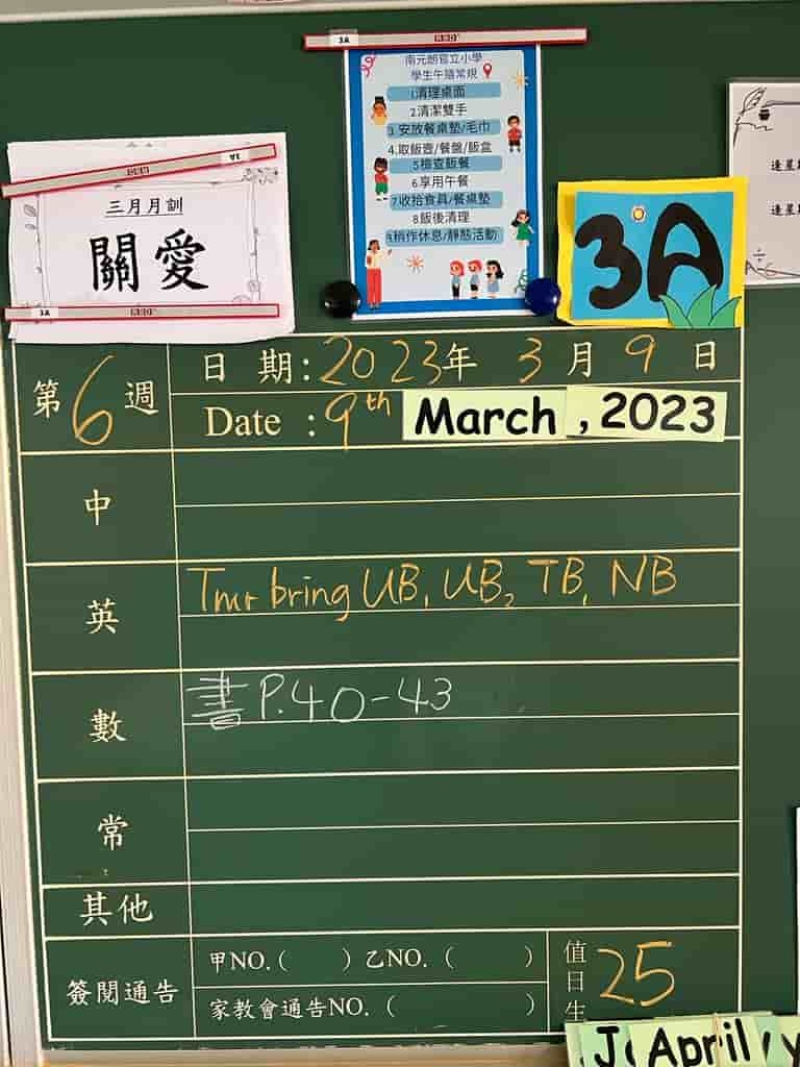 3A
南元朗官立小學
學生午膳常規
1.清理桌面
2.清潔雙手
3.安放餐桌墊/毛巾
4.取飯壺/餐盤/飯盒
5檢查飯餐
6.享用午餐
7.收拾食具/餐桌墊
8飯後清理
9.稍作休息/靜態活動
三月月訓
關愛
3A
3A
第6週
日 期:2023年 3 月 9 日
Date :9th March ,2023
中
英 Tmr bring UB, UB2 TB, NB
數 書 P.40-43
常
其他
簽閱通告
甲NO.( ) 乙NO. ( )
家教會通告NO. ( )
值日生 25
April